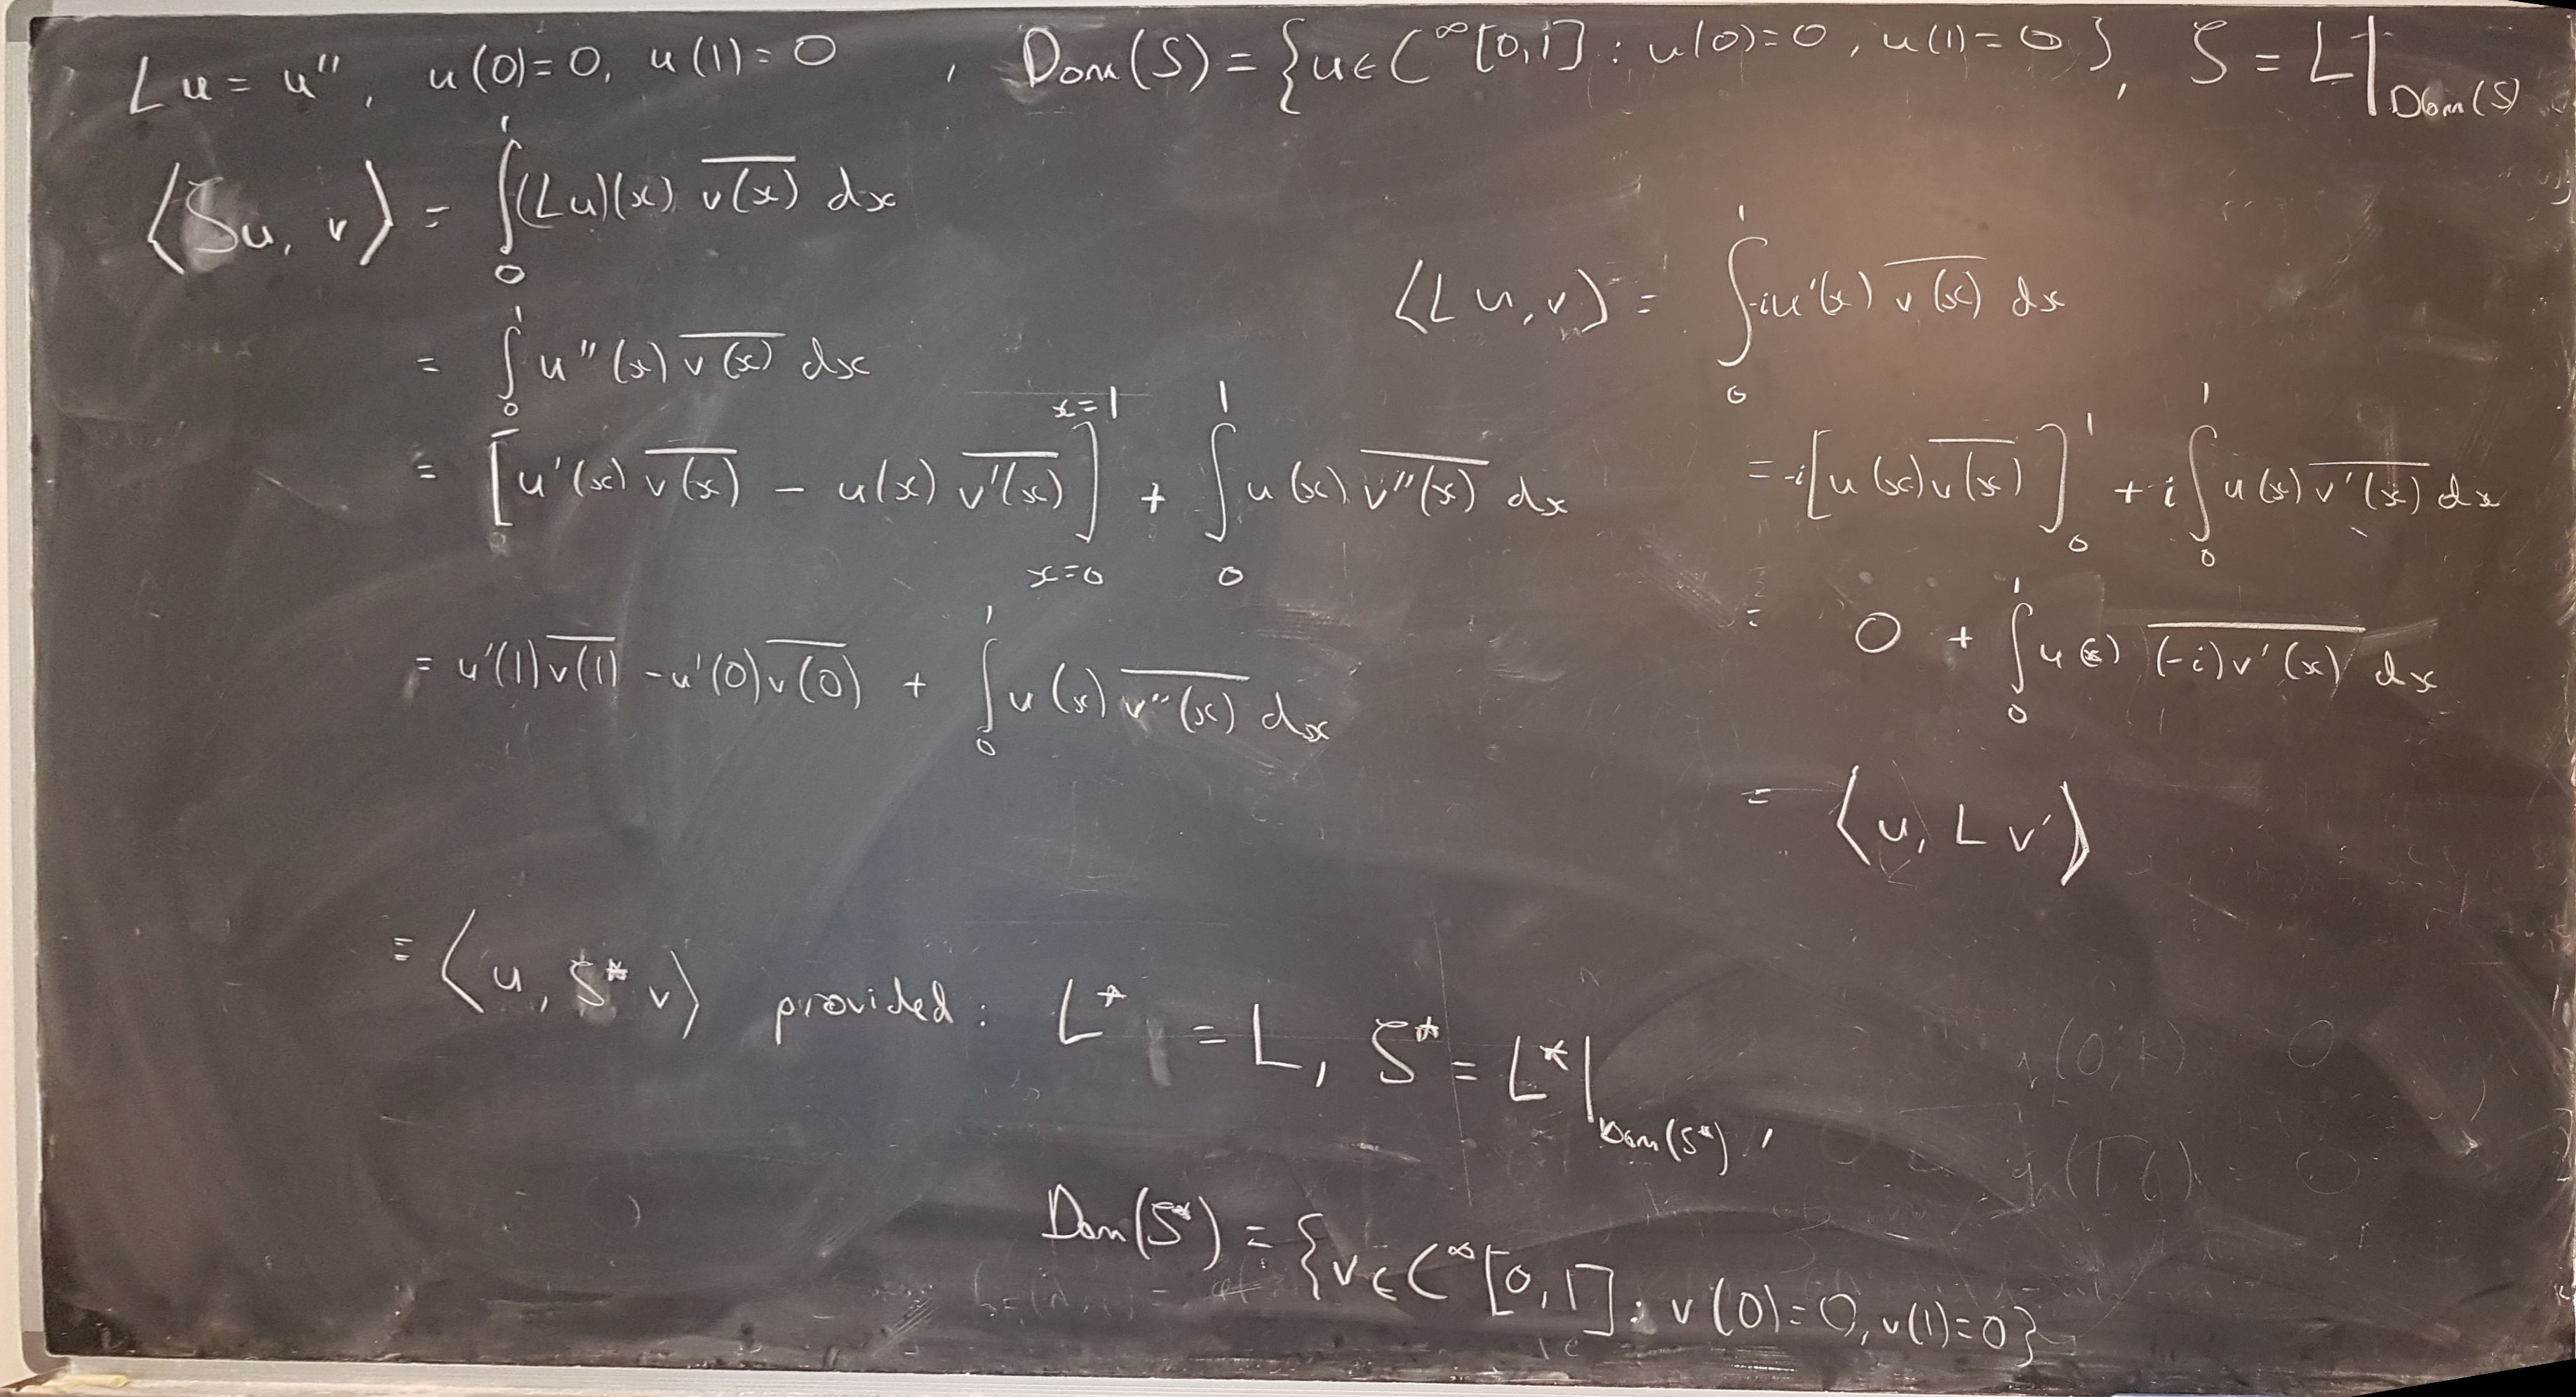 Lu = u'', u(0)=0, u(1)=0 , Dom(S) = {u∈C^∞[0,1] : u(0)=0, u(1)=0}, S = L|_{Dom(S)}
⟨Su, v⟩ = ∫_0^1 (Lu)(x) \overline{v(x)} dx
= ∫_0^1 u''(x) \overline{v(x)} dx
= [u'(x) \overline{v(x)} − u(x) \overline{v'(x)}]_{x=0}^{x=1} + ∫_0^1 u(x) \overline{v''(x)} dx
= u'(1)\overline{v(1)} − u'(0)\overline{v(0)} + ∫_0^1 u(x) \overline{v''(x)} dx
= ⟨u, S* v⟩ provided: L* = L, S* = L*|_{Dom(S*)},
Dom(S*) = {v∈C^∞[0,1] : v(0)=0, v(1)=0}
⟨Lu, v⟩ = ∫_0^1 -iu'(x) \overline{v(x)} dx
= -i[u(x)\overline{v(x)}]_0^1 + i∫_0^1 u(x) \overline{v'(x)} dx
= 0 + ∫_0^1 u(x) \overline{(-i)v'(x)} dx
= ⟨u, Lv⟩